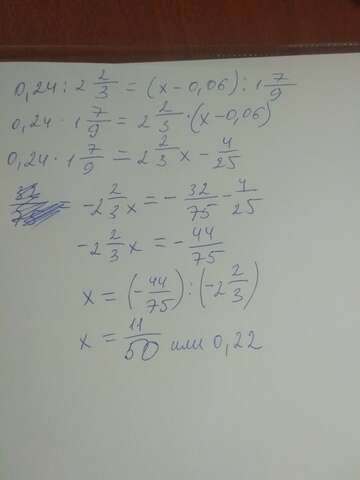 0,24 : 2 2/3 = (x - 0,06) : 1 7/9
0,24 · 1 7/9 = 2 2/3 · (x - 0,06)
0,24 · 1 7/9 = 2 2/3 x - 4/25
-2 2/3 x = - 32/75 - 4/25
-2 2/3 x = - 44/75
x = (- 44/75) : (-2 2/3)
x = 11/50 или 0,22